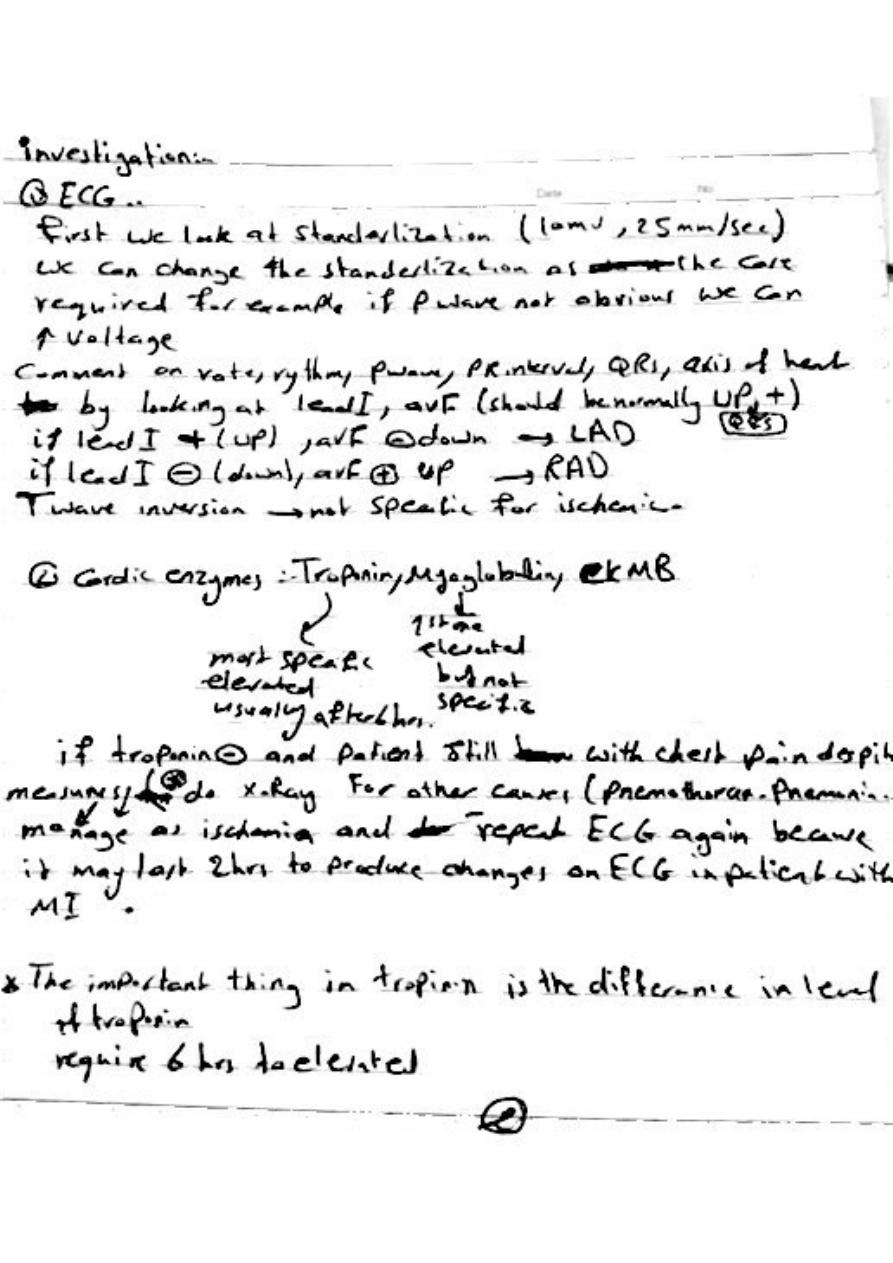 investigation:-
① ECG ..
Date No
first we look at standerlization (10mv, 25mm/sec)
we can change the standerlization as the case
required for example if p wave not obvious we can
↑ voltage
Comment on rate, rythm, pwave, PR interval, QRs, axis of heart
by looking at lead I, avF (should be normally UP, +)
QRS
if lead I + (up), avF ⊖ down → LAD
if lead I ⊖ (down), avF ⊕ up → RAD
T wave inversion → not specific for ischemic.
② Cardic enzymes :- Troponin, Myoglobulin, CKMB
most specific
elevated
usually after 6 hrs.
1st one
elevated
but not
specific
if troponin ⊖ and patient still with chest pain despit
measures, do x.Ray For other causes (pnemothorax. Pnemonia.
manage as ischamia and repeat ECG again because
it may last 2hrs to produce changes on ECG in patient with
MI .
* The important thing in tropinin is the differance in level
of troponin
require 6 hrs to elevated
2